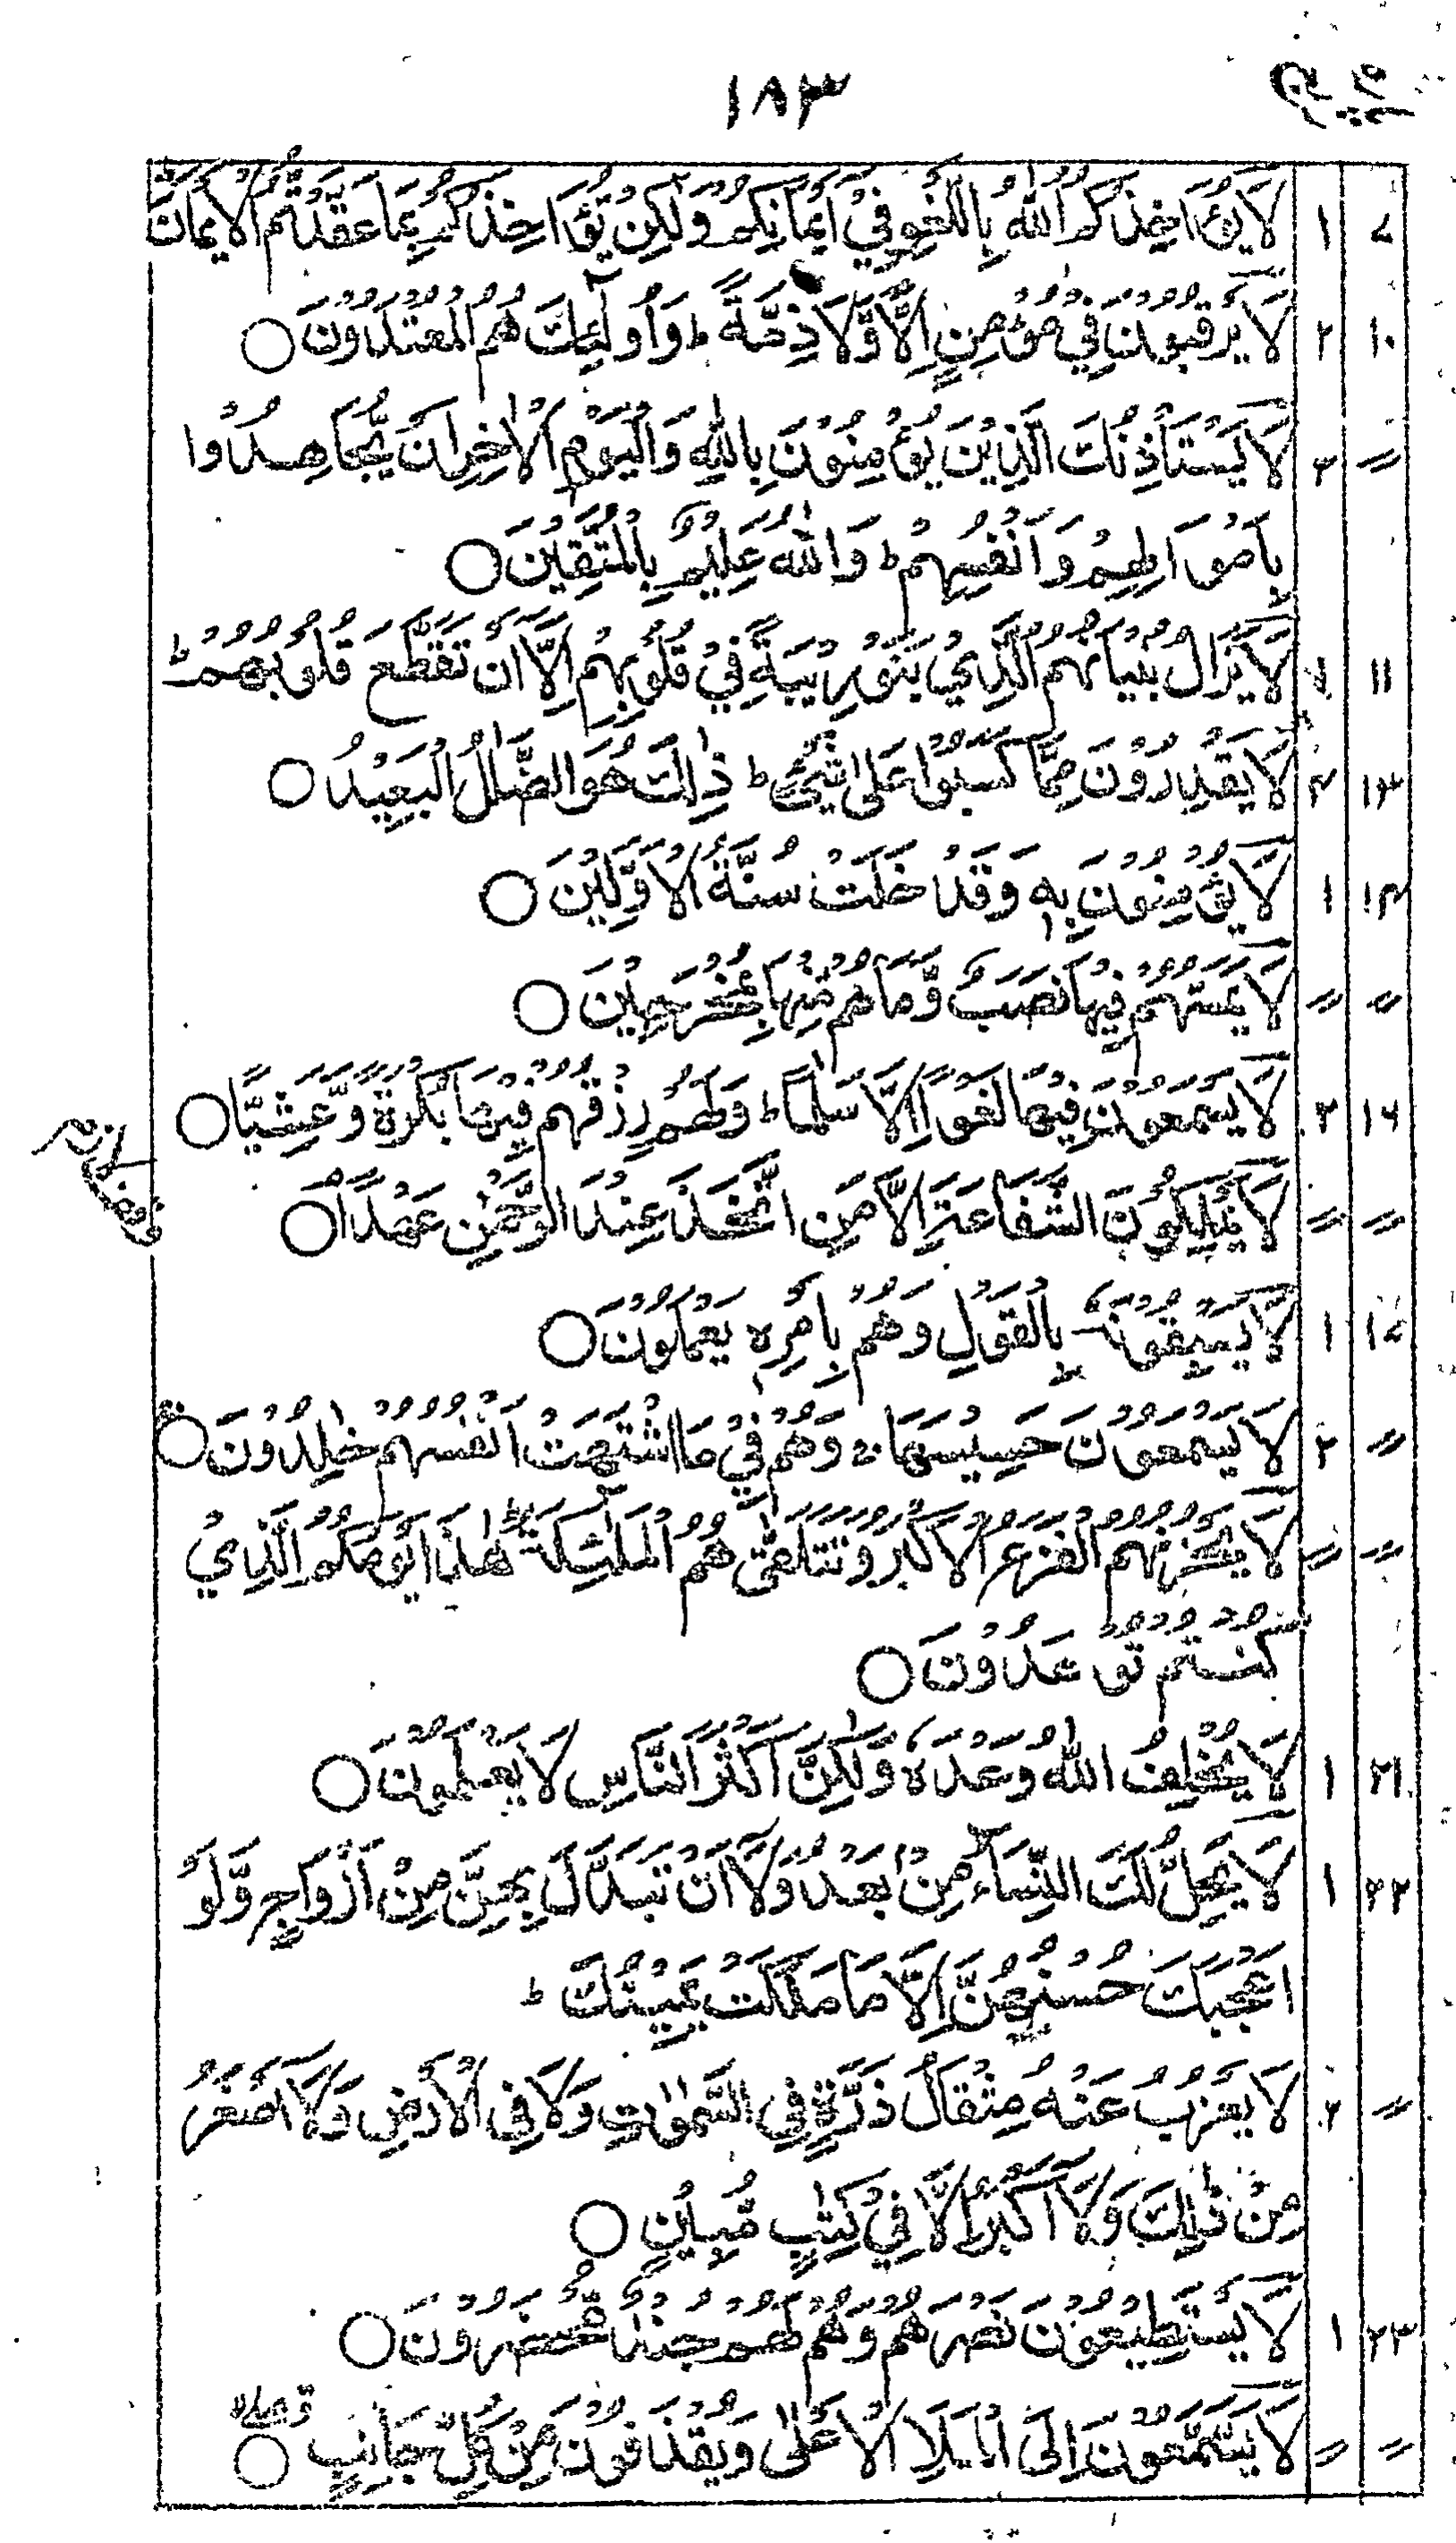 ١٨٣
٧ ١ لَا يُؤَاخِذُكُمُ اللّٰهُ بِاللَّغْوِ فِيْ اَيْمَانِكُمْ وَلٰكِنْ يُّؤَاخِذُكُمْ بِمَا عَقَّدْتُّمُ الْاَيْمَانَ
١٠ ٢ لَا يَرْقُبُوْنَ فِيْ مُؤْمِنٍ اِلًّا وَّلَا ذِمَّةً ؕ وَاُولٰٓئِكَ هُمُ الْمُعْتَدُوْنَ ○
〃 ٣ لَا يَسْتَأْذِنُكَ الَّذِيْنَ يُؤْمِنُوْنَ بِاللّٰهِ وَالْيَوْمِ الْاٰخِرِ اَنْ يُّجَاهِدُوْا
بِاَمْوَالِهِمْ وَاَنْفُسِهِمْ ؕ وَاللّٰهُ عَلِيْمٌ بِالْمُتَّقِيْنَ ○
١١ لَا يَزَالُ بُنْيَانُهُمُ الَّذِيْ بَنَوْا رِيْبَةً فِيْ قُلُوْبِهِمْ اِلَّا اَنْ تَقَطَّعَ قُلُوْبُهُمْ ؕ
١٣ ٣ لَا يَقْدِرُوْنَ مِمَّا كَسَبُوْا عَلٰى شَيْءٍ ؕ ذٰلِكَ هُوَ الضَّلٰلُ الْبَعِيْدُ ○
١٤ ١ لَا يُؤْمِنُوْنَ بِهٖ وَقَدْ خَلَتْ سُنَّةُ الْاَوَّلِيْنَ ○
〃 〃 لَا يَمَسُّهُمْ فِيْهَا نَصَبٌ وَّمَا هُمْ مِّنْهَا بِمُخْرَجِيْنَ ○
١٦ ٣ لَا يَسْمَعُوْنَ فِيْهَا لَغْوًا اِلَّا سَلٰمًا ؕ وَلَهُمْ رِزْقُهُمْ فِيْهَا بُكْرَةً وَّعَشِيًّا ○
〃 〃 لَا يَمْلِكُوْنَ الشَّفَاعَةَ اِلَّا مَنِ اتَّخَذَ عِنْدَ الرَّحْمٰنِ عَهْدًا ○
١٧ ١ لَا يَسْبِقُوْنَهٗ بِالْقَوْلِ وَهُمْ بِاَمْرِهٖ يَعْمَلُوْنَ ○
〃 ٢ لَا يَسْمَعُوْنَ حَسِيْسَهَا ۚ وَهُمْ فِيْ مَا اشْتَهَتْ اَنْفُسُهُمْ خٰلِدُوْنَ ○
〃 〃 لَا يَحْزُنُهُمُ الْفَزَعُ الْاَكْبَرُ وَتَتَلَقّٰىهُمُ الْمَلٰٓئِكَةُ ؕ هٰذَا يَوْمُكُمُ الَّذِيْ
كُنْتُمْ تُوْعَدُوْنَ ○
٢١ ١ لَا يُخْلِفُ اللّٰهُ وَعْدَهٗ وَلٰكِنَّ اَكْثَرَ النَّاسِ لَا يَعْلَمُوْنَ ○
٢٢ ١ لَا يَحِلُّ لَكَ النِّسَآءُ مِنْۢ بَعْدُ وَلَآ اَنْ تَبَدَّلَ بِهِنَّ مِنْ اَزْوَاجٍ وَّلَوْ
اَعْجَبَكَ حُسْنُهُنَّ اِلَّا مَا مَلَكَتْ يَمِيْنُكَ ؕ
〃 ٢ لَا يَعْزُبُ عَنْهُ مِثْقَالُ ذَرَّةٍ فِي السَّمٰوٰتِ وَلَا فِي الْاَرْضِ وَلَآ اَصْغَرُ
مِنْ ذٰلِكَ وَلَآ اَكْبَرُ اِلَّا فِيْ كِتٰبٍ مُّبِيْنٍ ○
٢٣ ١ لَا يَسْتَطِيْعُوْنَ نَصْرَهُمْ وَهُمْ لَهُمْ جُنْدٌ مُّحْضَرُوْنَ ○
〃 〃 لَا يَسَّمَّعُوْنَ اِلَى الْمَلَاِ الْاَعْلٰى وَيُقْذَفُوْنَ مِنْ كُلِّ جَانِبٍ ○